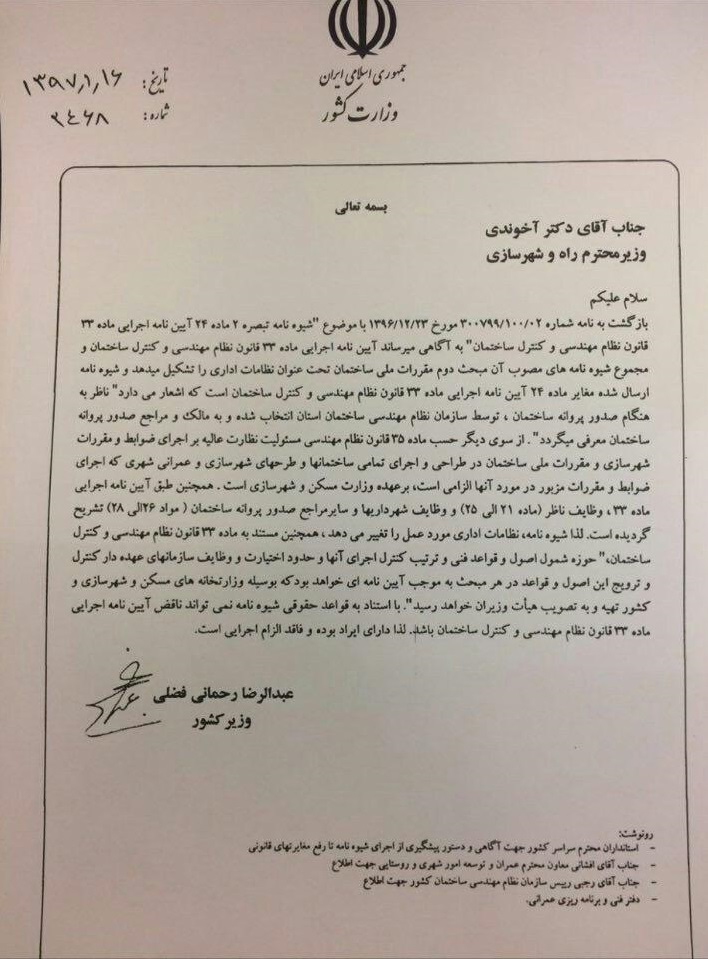 جمهوری اسلامی ایران
وزارت کشور
تاریخ: ۱۳۹۷٫۱٫۱۶
شماره: ۳۴۶۸
بسمه تعالی
جناب آقای دکتر آخوندی
وزیرمحترم راه و شهرسازی
سلام علیکم
بازگشت به نامه شماره ۳۰۰۷۹۹/۱۰۰/۰۲ مورخ ۱۳۹۶/۱۲/۲۳ با موضوع "شیوه نامه تبصره ۲ ماده ۲۴ آیین نامه اجرایی ماده ۳۳
قانون نظام مهندسی و کنترل ساختمان" به آگاهی میرساند آیین نامه اجرایی ماده ۳۳ قانون نظام مهندسی و کنترل ساختمان و
مجموع شیوه نامه های مصوب آن مبحث دوم مقررات ملی ساختمان تحت عنوان نظامات اداری را تشکیل میدهد و شیوه نامه
ارسال شده مغایر ماده ۲۴ آیین نامه اجرایی ماده ۳۳ قانون نظام مهندسی و کنترل ساختمان است که اشعار می دارد" ناظر به
هنگام صدور پروانه ساختمان ، توسط سازمان نظام مهندسی ساختمان استان انتخاب شده و به مالک و مراجع صدور پروانه
ساختمان معرفی میگردد" . از سوی دیگر حسب ماده ۳۵ قانون نظام مهندسی مسئولیت نظارت عالیه بر اجرای ضوابط و مقررات
شهرسازی و مقررات ملی ساختمان در طراحی و اجرای تمامی ساختمانها و طرحهای شهرسازی و عمرانی شهری که اجرای
ضوابط و مقررات مزبور در مورد آنها الزامی است، برعهده وزارت مسکن و شهرسازی است . همچنین طبق آیین نامه اجرایی
ماده ۳۳ ، وظایف ناظر (ماده ۲۱ الی ۲۵) و وظایف شهرداریها و سایرمراجع صدور پروانه ساختمان ( مواد ۲۶الی ۲۸) تشریح
گردیده است. لذا شیوه نامه، نظامات اداری مورد عمل را تغییر می دهد ، همچنین مستند به ماده ۳۳ قانون نظام مهندسی و کنترل
ساختمان،" حوزه شمول اصول و قواعد فنی و ترتیب کنترل اجرای آنها و حدود اختیارت و وظایف سازمانهای عهده دار کنترل
و ترویج این اصول و قواعد در هر مبحث به موجب آیین نامه ای خواهد بودکه بوسیله وزارتخانه های مسکن و شهرسازی و
کشور تهیه و به تصویب هیأت وزیران خواهد رسید". با استناد به قواعد حقوقی شیوه نامه نمی تواند ناقض آیین نامه اجرایی
ماده ۳۳ قانون نظام مهندسی و کنترل ساختمان باشد. لذا دارای ایراد بوده و فاقد الزام اجرایی است.
عبدالرضا رحمانی فضلی
وزیر کشور
رونوشت:
- استانداران محترم سراسر کشور جهت آگاهی و دستور پیشگیری از اجرای شیوه نامه تا رفع مغایرتهای قانونی
- جناب آقای افشانی معاون محترم عمران و توسعه امور شهری و روستایی جهت اطلاع
- جناب آقای رجبی رییس سازمان نظام مهندسی ساختمان کشور جهت اطلاع
- دفتر فنی و برنامه ریزی عمرانی.